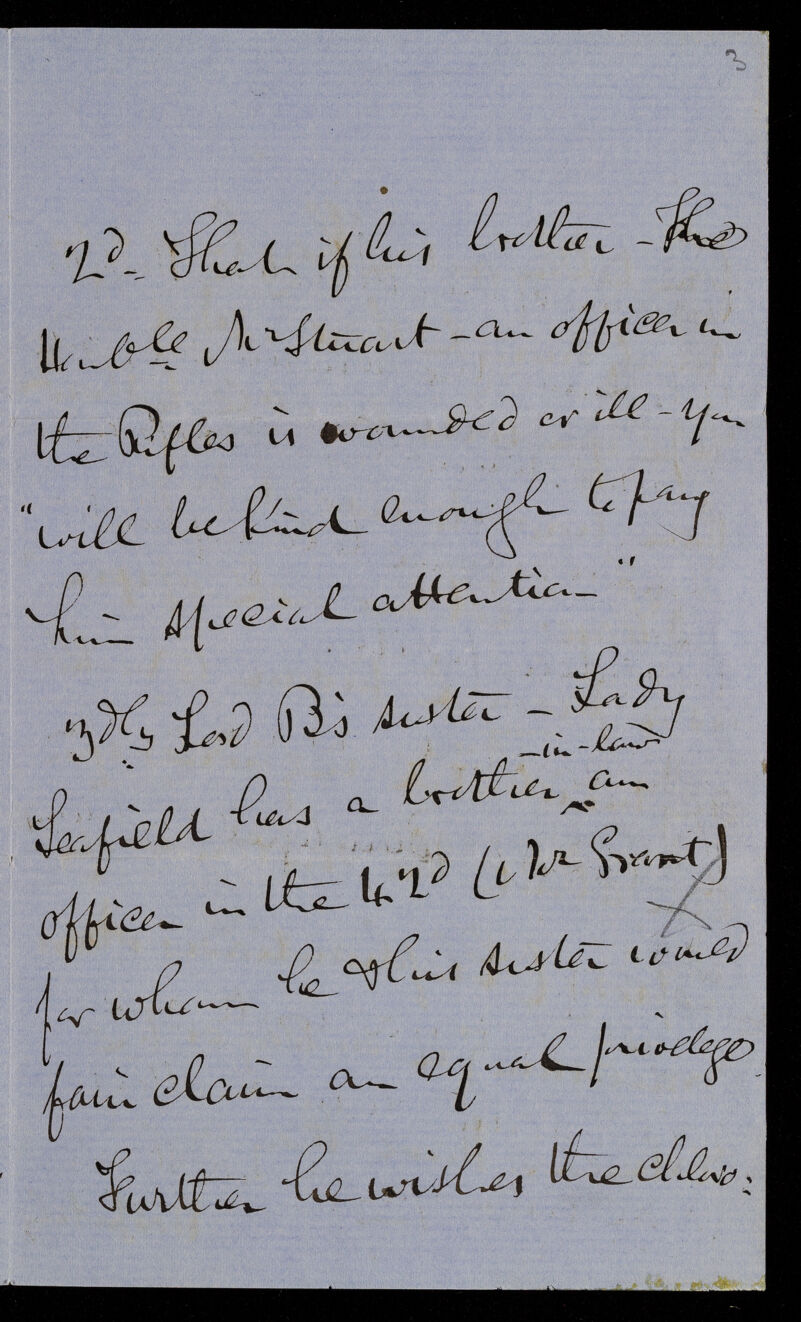 3
2d_ That if his brother - The
Honble Mr Stuart - an officer in
the Rifles is wounded or ill - you
"will be kind enough to pay
him special attention"
3dly Lord B's sister - Lady
-in-law
Seafield has a brother ^ an
officer in the 42d ( Mr Grant)
for whom he & his sister would
fain claim an equal privilege
Further he wishes the chloro: